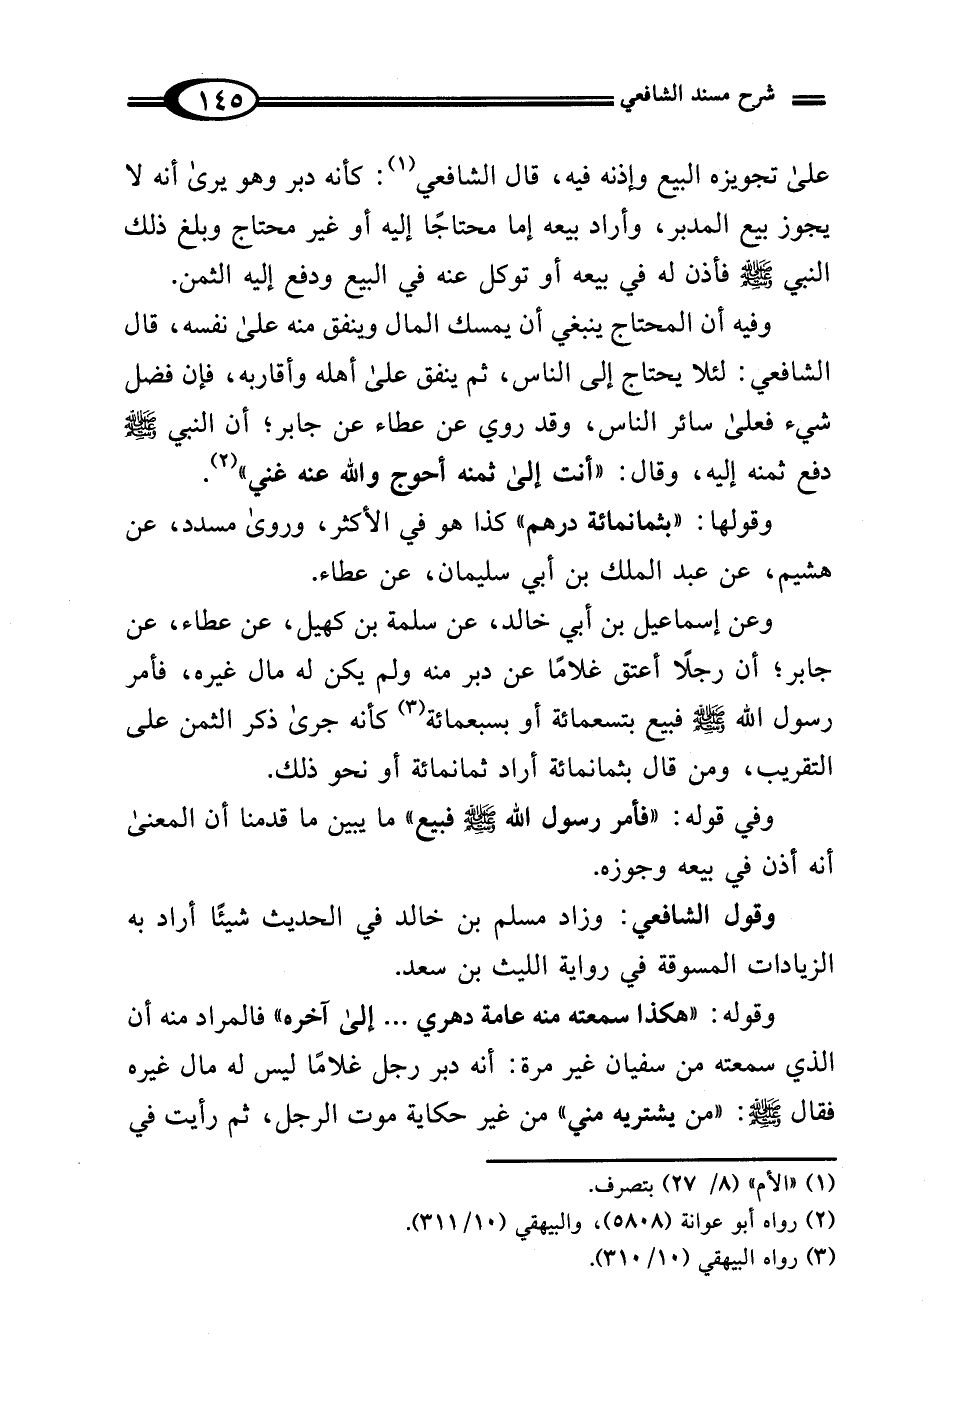 شرح مسند الشافعي ١٤٥
علىٰ تجويزه البيع وإذنه فيه، قال الشافعي(١): كأنه دبر وهو يرىٰ أنه لا
يجوز بيع المدبر، وأراد بيعه إما محتاجًا إليه أو غير محتاج وبلغ ذلك
النبي ﷺ فأذن له في بيعه أو توكل عنه في البيع ودفع إليه الثمن.
وفيه أن المحتاج ينبغي أن يمسك المال وينفق منه علىٰ نفسه، قال
الشافعي: لئلا يحتاج إلى الناس، ثم ينفق علىٰ أهله وأقاربه، فإن فضل
شيء فعلىٰ سائر الناس، وقد روي عن عطاء عن جابر؛ أن النبي ﷺ
دفع ثمنه إليه، وقال: «أنت إلىٰ ثمنه أحوج والله عنه غني»(٢).
وقولها: «بثمانمائة درهم» كذا هو في الأكثر، وروىٰ مسدد، عن
هشيم، عن عبد الملك بن أبي سليمان، عن عطاء.
وعن إسماعيل بن أبي خالد، عن سلمة بن كهيل، عن عطاء، عن
جابر؛ أن رجلًا أعتق غلامًا عن دبر منه ولم يكن له مال غيره، فأمر
رسول الله ﷺ فبيع بتسعمائة أو بسبعمائة(٣) كأنه جرىٰ ذكر الثمن على
التقريب، ومن قال بثمانمائة أراد ثمانمائة أو نحو ذلك.
وفي قوله: «فأمر رسول الله ﷺ فبيع» ما يبين ما قدمنا أن المعنىٰ
أنه أذن في بيعه وجوزه.
وقول الشافعي: وزاد مسلم بن خالد في الحديث شيئًا أراد به
الزيادات المسوقة في رواية الليث بن سعد.
وقوله: «هكذا سمعته منه عامة دهري ... إلىٰ آخره» فالمراد منه أن
الذي سمعته من سفيان غير مرة: أنه دبر رجل غلامًا ليس له مال غيره
فقال ﷺ: «من يشتريه مني» من غير حكاية موت الرجل، ثم رأيت في
(١) «الأم» (٨/ ٢٧) بتصرف.
(٢) رواه أبو عوانة (٥٨٠٨)، والبيهقي (١٠/ ٣١١).
(٣) رواه البيهقي (١٠/ ٣١٠).